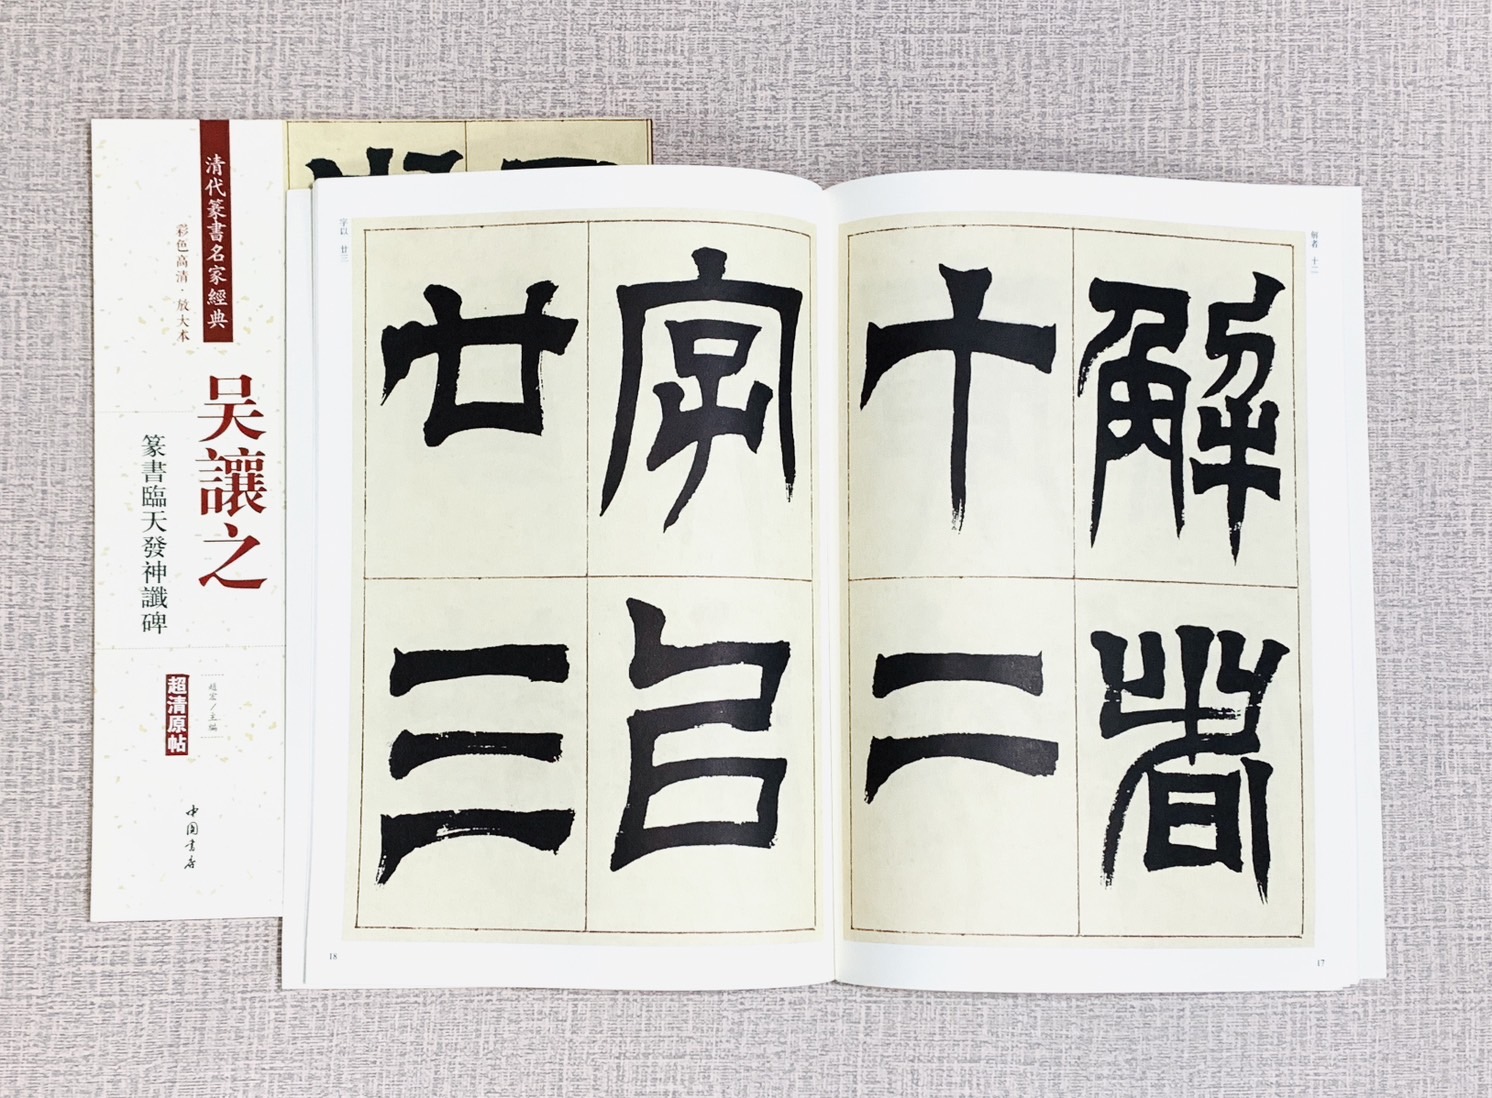 清代篆書名家經典
彩色高清·放大本
吴讓之
篆書臨天發神讖碑
趙宏／主編
超清原帖
中国书店
解者 十二
解者
十二
17
字以
廿三
字以 廿三
18